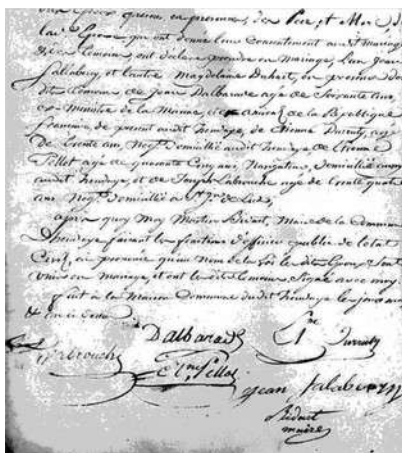 deux Epoux en presence, des Pere et Mere, de
la Epouse qui ont donné leur Consentement au dit mariage
et les Comoins ont déclaré prendre en Mariage, l'un Jean
Sallabery, et l'autre Magdelaine Duhart, en presence des
dits témoins de Jean Dalbarade agé de Soixante ans,
ex Ministre de la Marine, et amiral de la République
française, de present audit hendaye, de Etienne Durruty, agé
de trente ans, Negt. domicilié audit hendaye, de Etienne
Pellot agé de quarante Cinq ans, Navigateur, domicilié aussy
audit hendaye, et de Joseph Labrouche agé de trente quatre
ans Negt. domicilié a St. Jn. de Luz,
après quoy Moy Martin Bidart, Maire de la Commune
d'hendaye faisant les fonctions d'officier public de l'état
Civil, ai prononcé qu'au Nom de la loi le dits Epoux Sont
unis en mariage, et ont les dits témoins Signé avec moy
fait a la Maison Commune du dit hendaye les jours mois
& an ci dessus
Dalbarade
Ene Durruty
Labrouche
Etne Pellot
jean Salabery
Bidart
maire